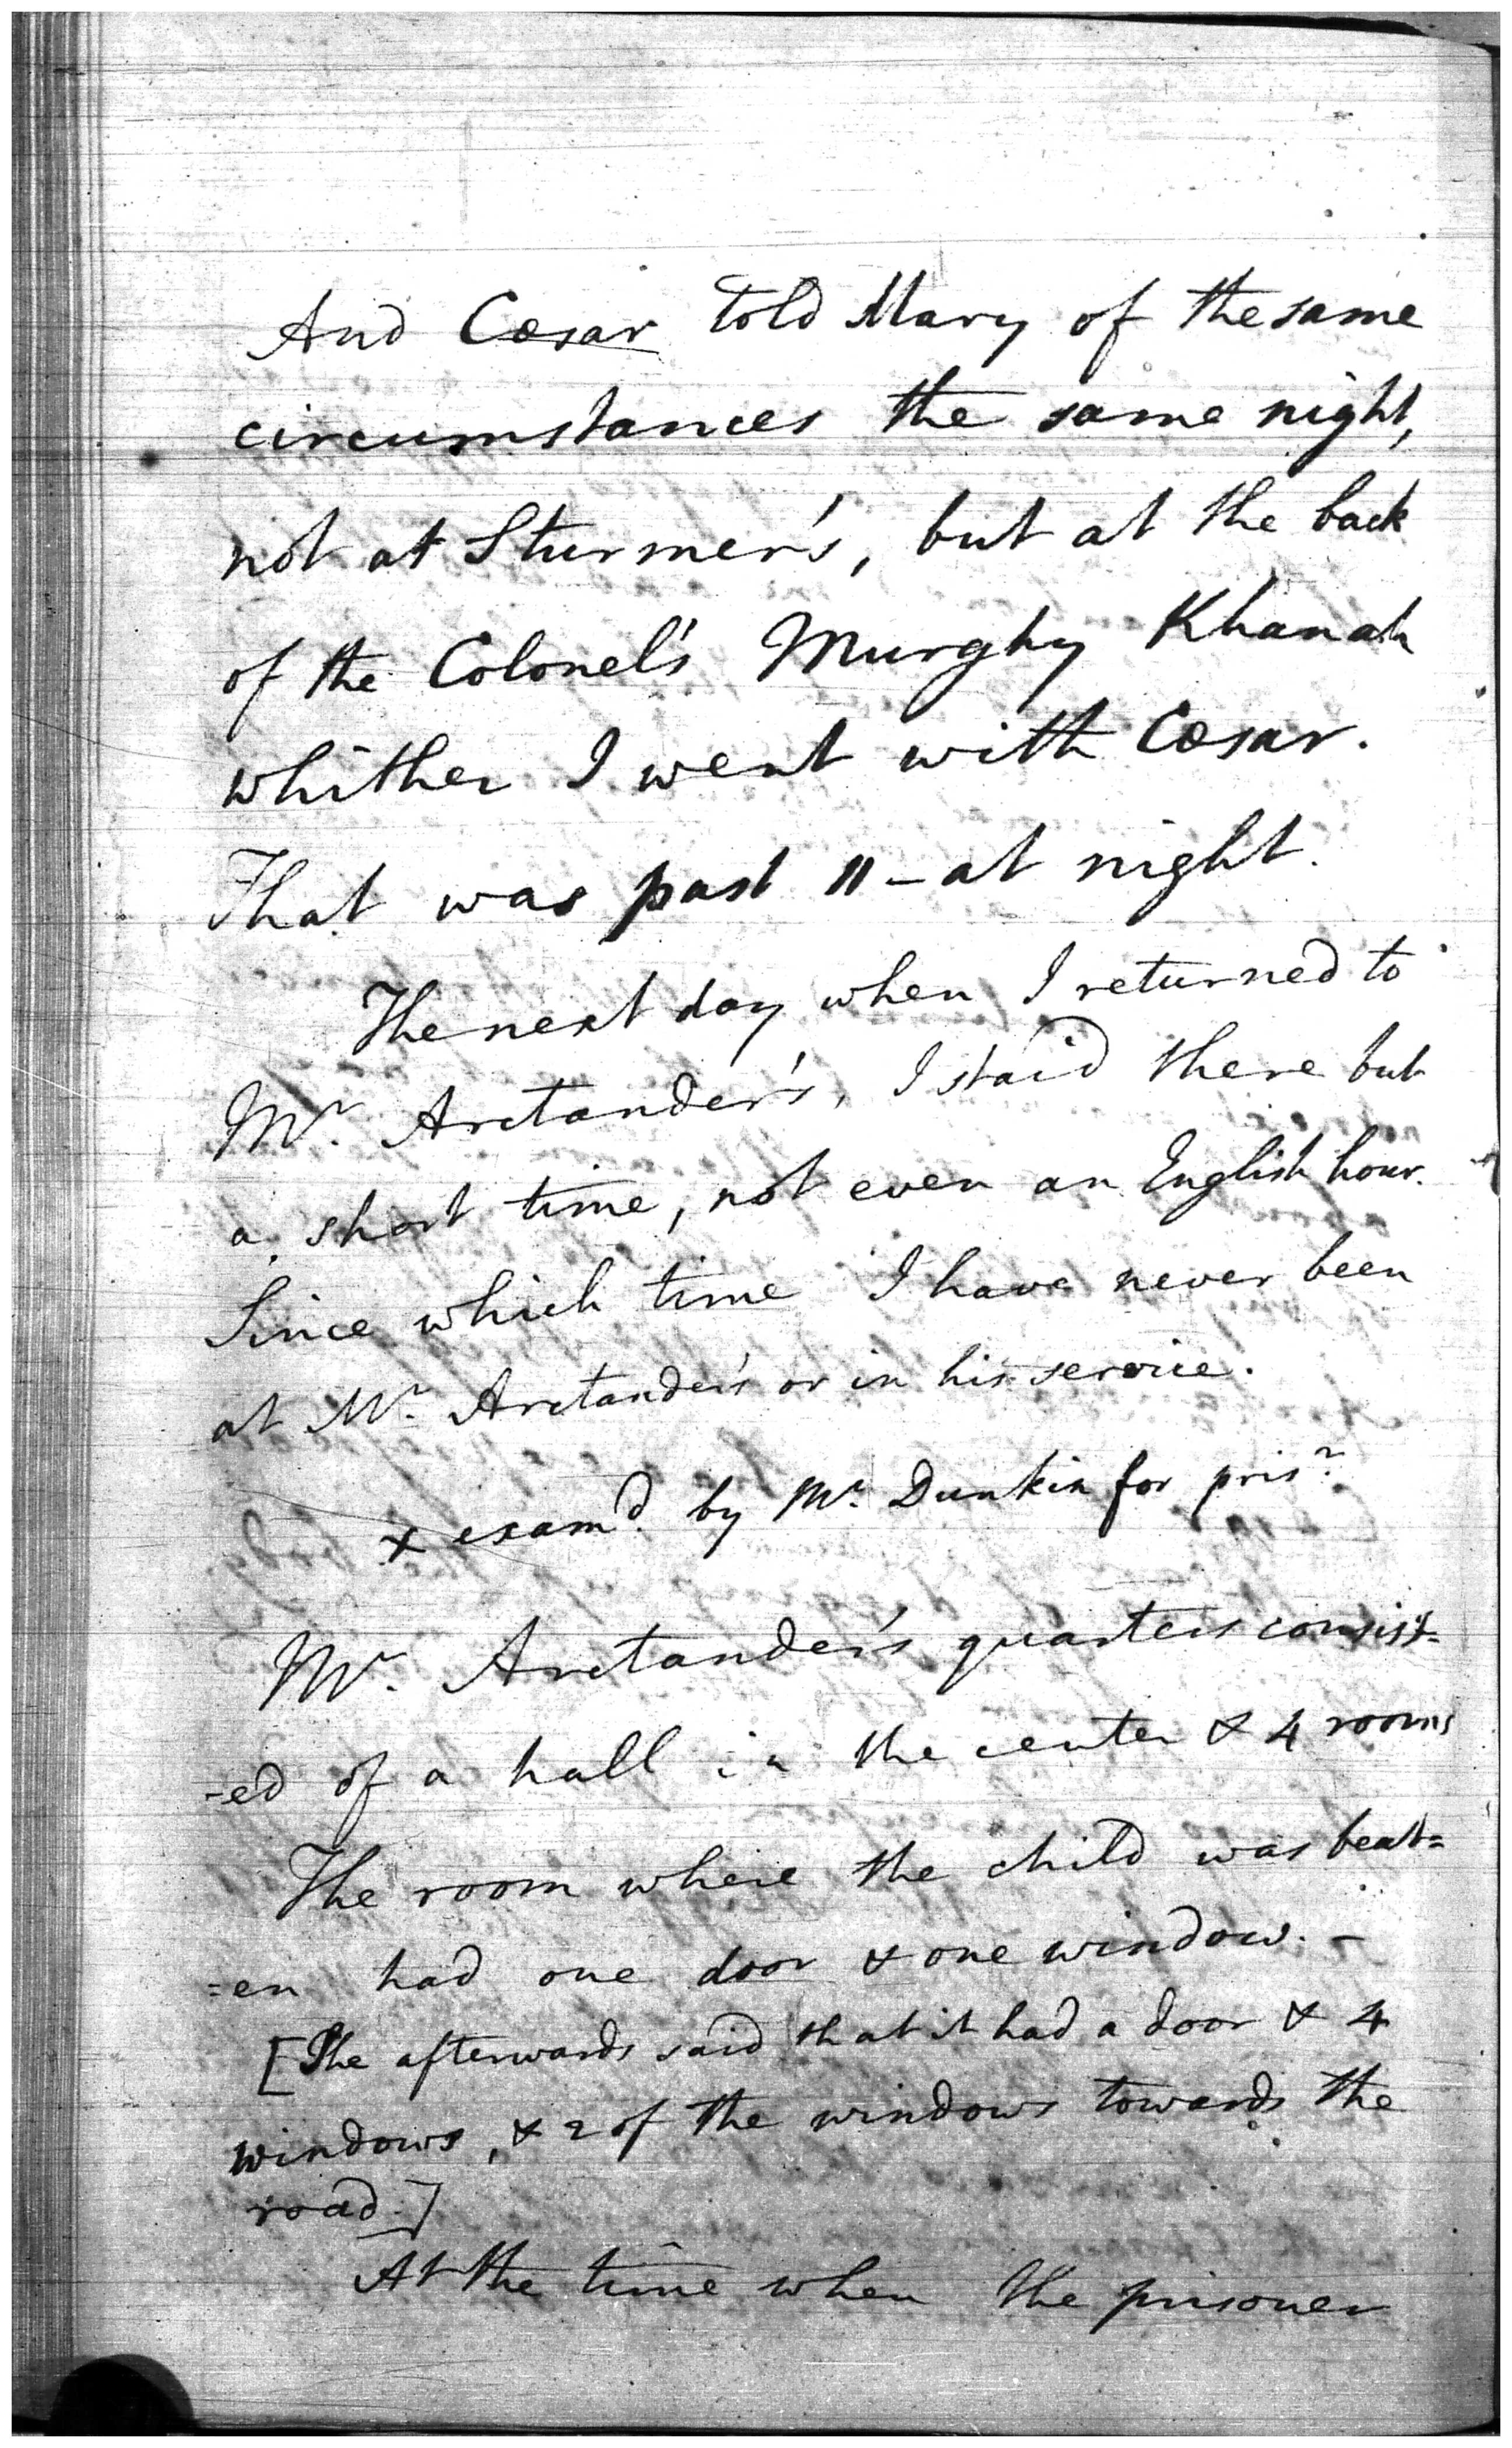 And Cæsar told Mary of the same
circumstances the same night,
not at Sturmer's, but at the back
of the Colonel's Murghy Khanah
whither I went with Cæsar.
That was past 11 - at night.
The next day when I returned to
Mr. Arctander's, I staid there but
a short time, not even an English hour.
Since which time I have never been
at Mr. Arctander's or in his service.
x examd. by Mr. Dunkin for prisr.
Mr. Arctander's quarters consist-
-ed of a hall in the center & 4 rooms
The room where the child was beat=
=en had one door & one window. -
[She afterwards said that it had a door & 4
windows, & 2 of the windows towards the
road.]
At the time when the prisoner